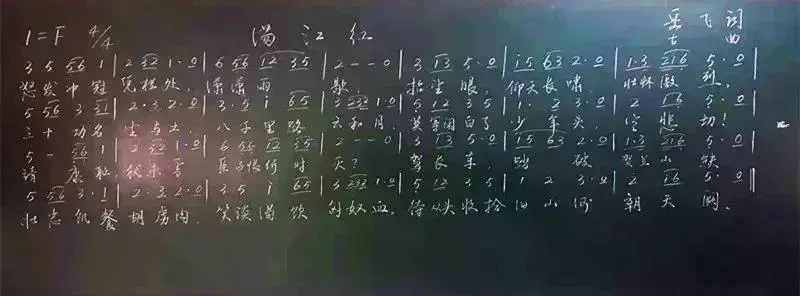 1=F 4/4 满江红 岳飞词
古曲
3 5 56 1 | 2 32 1·0 | 6 56 12 35 | 2 - - 0 | 3 13 5·0 | i5 63 2·0 | 1·3 216 5·0 |
怒发冲冠 凭栏处, 潇潇雨 歇, 抬望眼, 仰天长啸, 壮怀激烈,
5 56 3 21 | 2·3 2·0 | 3 5 i 65 | 3 232 1·0 | 5 12 3 5 | 1· 2 3·0 | 2 16 5·0 |
三十功名 尘与土, 八千里路 云和月, 莫等闲白了 少年头, 空悲切!
5 - 56 1 | 2 32 1·0 | 6 56 12 35 | 2 - - 0 | 3 13 5·0 | i5 63 2·0 | 1·3 216 5·0
靖康耻, 犹未雪 臣子恨何时 灭? 驾长车, 踏破 贺兰山缺
5 56 3·1 | 2·3 2·0 | 3 5 i 65 | 3 232 1·0 | 5 12 3 5 | 1 2 3·0 | 2 16 5·0 |
壮志饥餐 胡虏肉, 笑谈渴饮 匈奴血, 待从头收拾 旧山河 朝天阙.